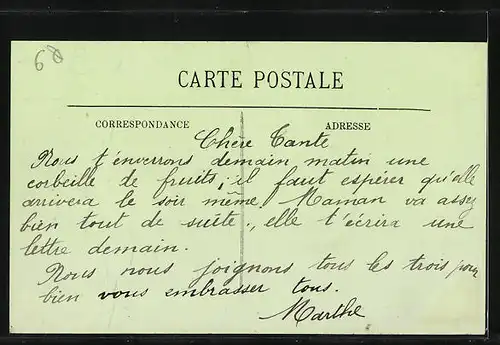 68
CARTE POSTALE
CORRESPONDANCE ADRESSE
Chère Tante
Nous t'enverrons demain matin une
corbeille de fruits; il faut espérer qu'elle
arrivera le soir même. Maman va assez
bien tout de suite, elle t'écrira une
lettre demain.
Nous nous joignons tous les trois pour
bien vous embrasser tous.
Marthe